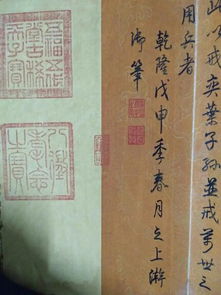 此以戒奕葉子孫並戒萬世之
用兵者
乾隆戊申季春月之上澣
御筆
五福五代堂古稀天子寶
八徵耄念之寶